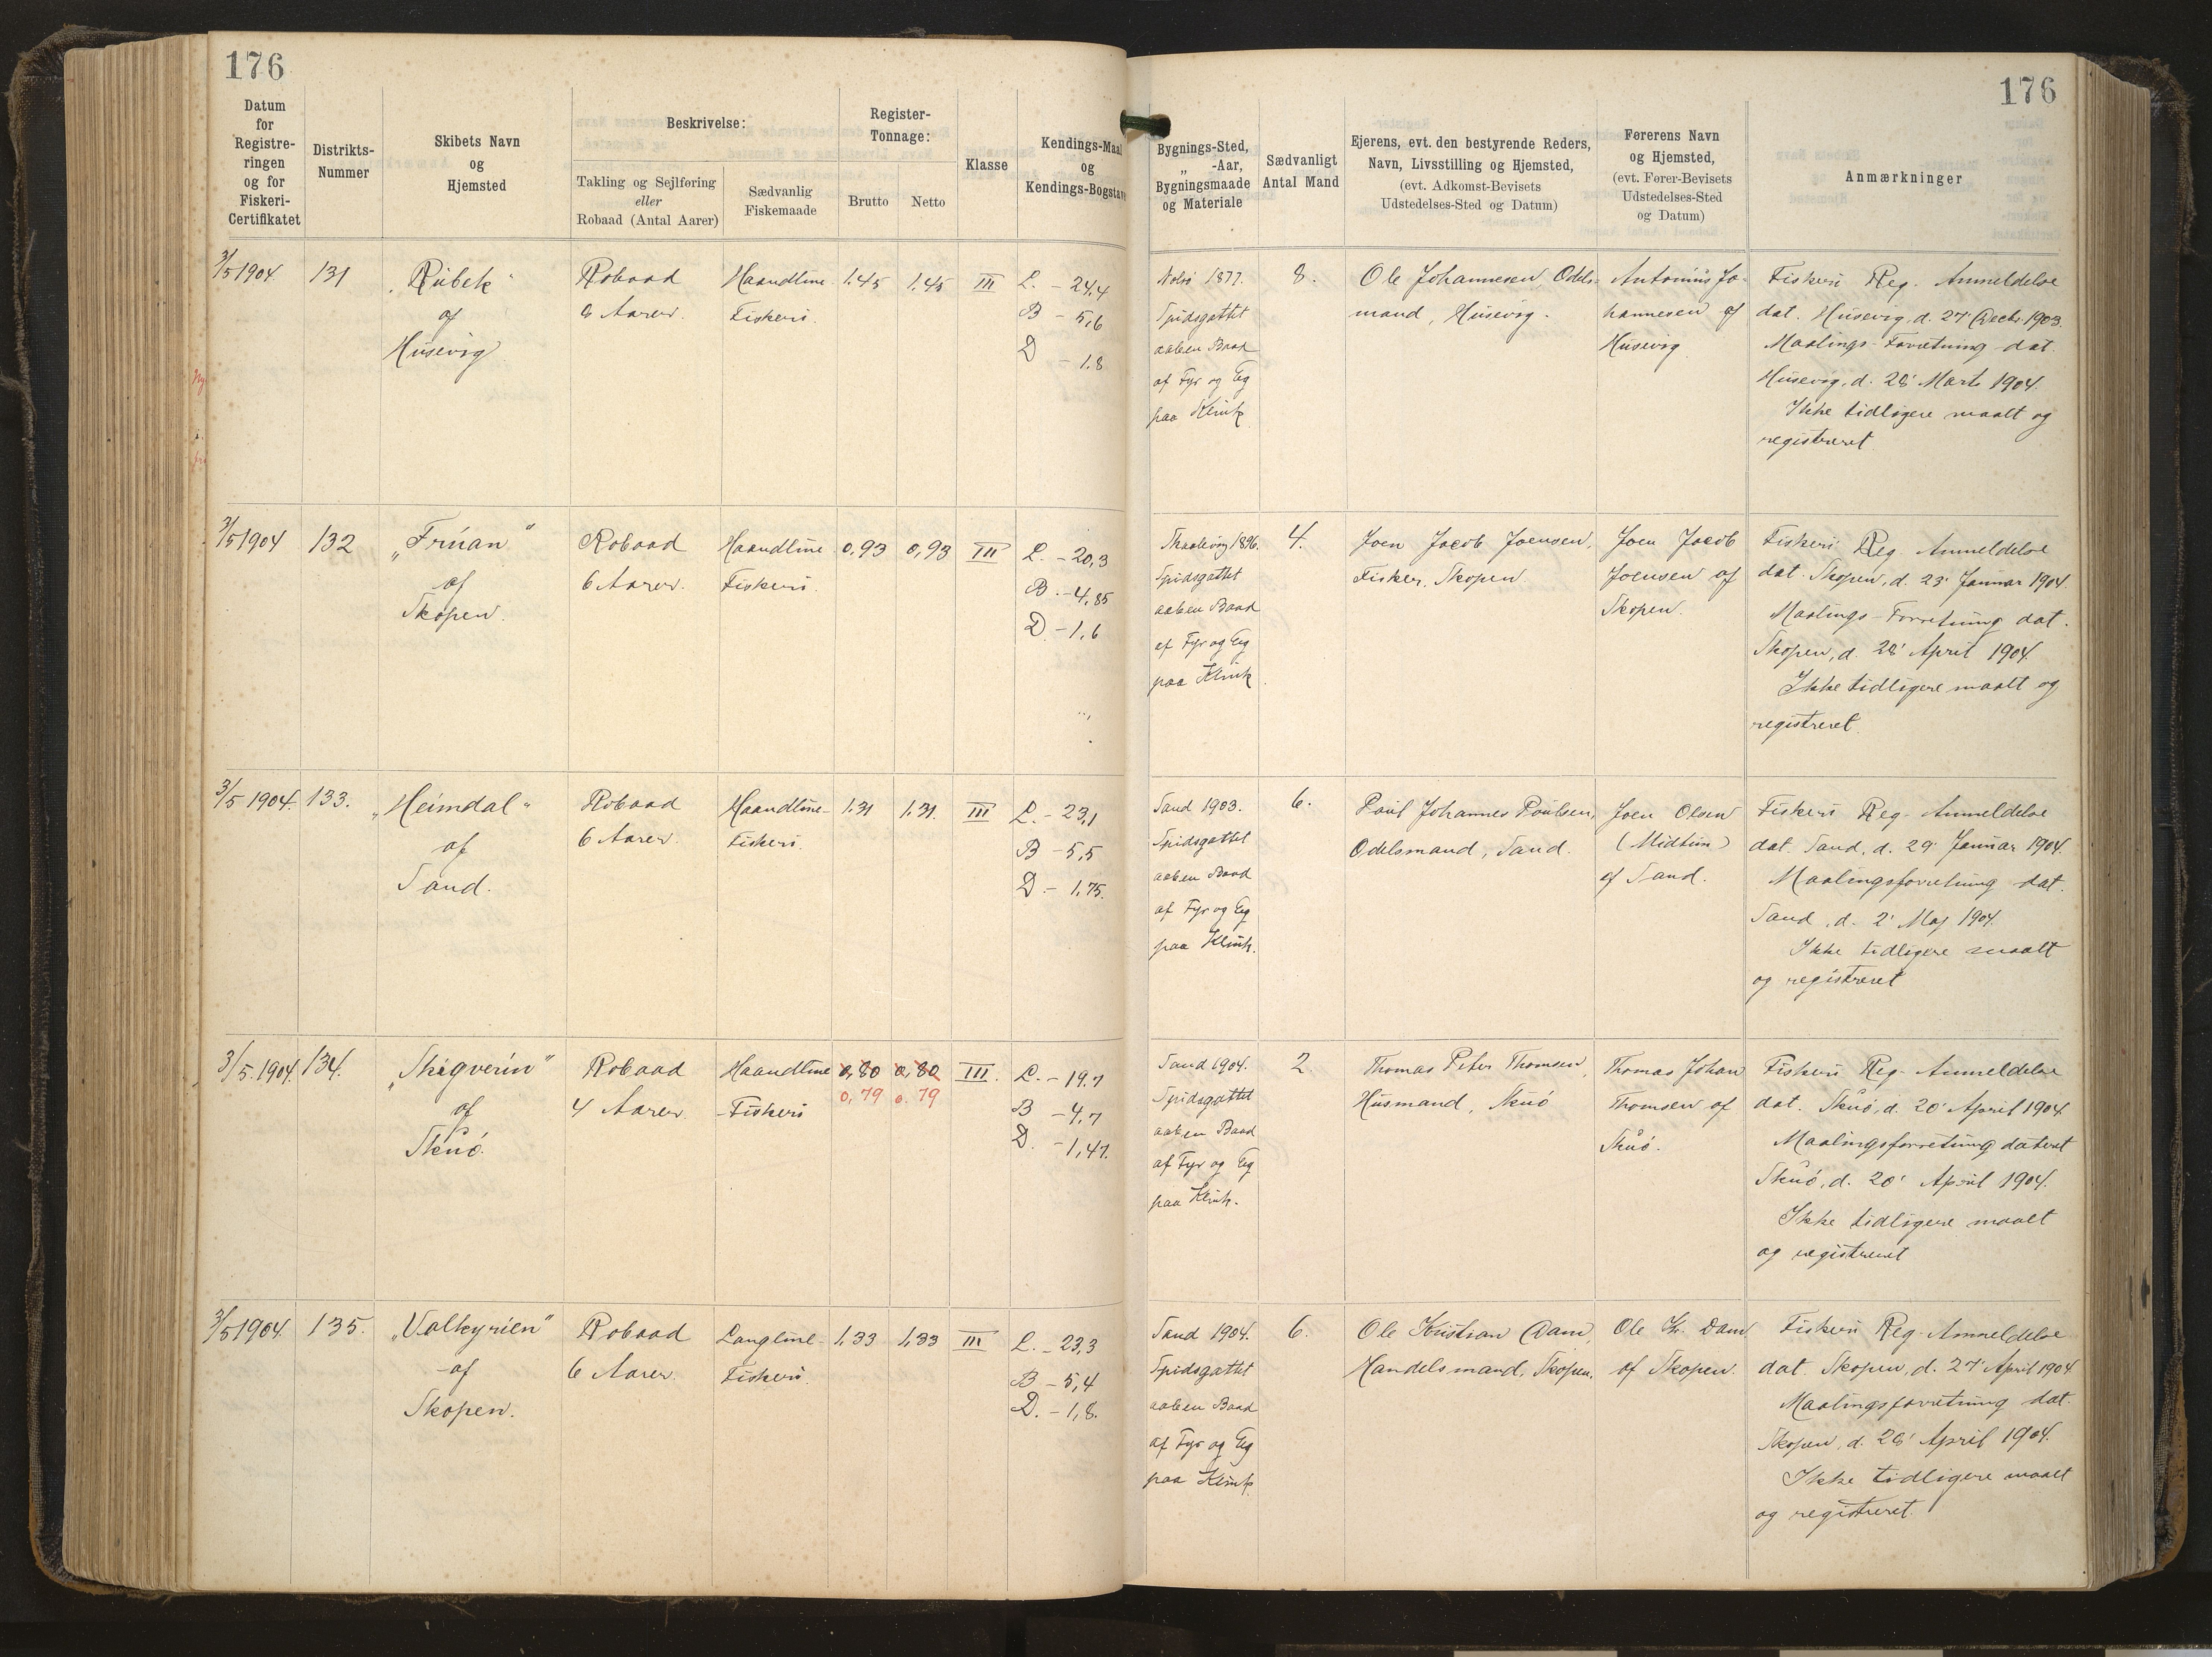 176
176
Datum
for
Registre-
ringen
og for
Fiskeri-
Certifikatet
Distrikts-
Nummer
Skibets Navn
og
Hjemsted
Beskrivelse:
Takling og Sejlføring
eller
Robaad (Antal Aarer)
Sædvanlig
Fiskemaade
Register-
Tonnage:
Brutto
Netto
Klasse
Kendings-Maal
og
Kendings-Bogstave
Bygnings-Sted,
„ -Aar,
Bygningsmaade
og Materiale
Sædvanligt
Antal Mand
Ejerens, evt. den bestyrende Reders,
Navn, Livsstilling og Hjemsted,
(evt. Adkomst-Bevisets
Udstedelses-Sted og Datum)
Førerens Navn
og Hjemsted,
(evt. Fører-Bevisets
Udstedelses-Sted
og Datum)
Anmærkninger
3/5 1904.
131
„Rübek“
of
Húsevig
Robaad
6 Aarer.
Haandline
Fiskeri.
1.45
1.45
III
L. - 24,4
B - 5,6
D - 1.8
Nolsö 1877.
Spidsgattet
aaben Baad
af Fyr og Eg
paa Klink
8.
Ole Johannesen, Odels-
mand, Húsevig.
Antonius Jo-
hannesen af
Húsevig
Fiskeri Reg. Anmeldelse
dat. Húsevig, d. 27' Decbr. 1903.
Maalings-Forretning dat.
Húsevig, d. 28' Marts 1904.
Ikke tidligere maalt og
registreret
3/5 1904
132
„Frúan“
af
Skopen.
Robaad
6 Aarer.
Haandline
Fiskeri.
0,93
0,93
III
L. - 20,3
B. - 4,85
D. - 1,6
Skaalevig 1896.
Spidsgattet
aaben Baad
af Fyr og Eg
paa Klink
4.
Joen Jacob Joensen,
Fisker, Skopen
Joen Jacob
Joensen af
Skopen.
Fiskeri Reg. Anmeldelse
dat. Skopen, d. 23' Januar 1904.
Maalings-Forretning dat.
Skopen, d. 28' April 1904.
Ikke tidligere maalt og
registreret.
3/5 1904.
133.
„Heimdal“
af
Sand.
Robaad
6 Aarer.
Haandline-
Fiskeri.
1.31
1.31.
III
L. - 23,1
B - 5,5
D. - 1,75.
Sand 1903.
Spidsgattet
aaben Baad
af Fyr og Eg
paa Klink.
6.
Poul Johannes Poulsen,
Odelsmand, Sand.
Joen Olsen
(Midtún)
af Sand.
Fiskeri Reg. Anmeldelse
dat. Sand, d. 29' Januar 1904.
Maalingsforretning dat.
Sand, d. 2' Maj 1904.
Ikke tidligere maalt
og registreret
3/5 1904.
134.
„Skigverin“
af
Skuö.
Robaad
4 Aarer.
Haandline
-Fiskeri
0,80
0,80
0,79
0.79
III.
L. - 19.7
B - 4,7
D. - 1,47.
Sand 1904.
Spidsgattet
aaben Baad
af Fyr og Eg
paa Klink.
2.
Thomas Peter Thomsen,
Husmand, Skuö
Thomas Johan
Thomsen af
Skuö.
Fiskeri Reg. Anmeldelse
dat. Skuö, d. 20' April 1904.
Maalingsforretning dateret
Skuö, d. 20' April 1904.
Ikke tidligere maalt
og registreret
3/5 1904.
135.
„Valkyrien“
af
Skopen.
Robaad
6 Aarer.
Langline-
Fiskeri.
1,33
1,33
III
L. - 23,3
B - 5,4
D. - 1,8.
Sand 1904.
Spidsgattet
aaben Baad
af Fyr og Eg
paa Klink.
6.
Ole Kristian Dam,
Handelsmand, Skopen.
Ole Kr. Dam
af Skopen.
Fiskeri Reg. Anmeldelse
dat. Skopen, d. 27' April 1904
Maalingsforretning dat.
Skopen, d. 28' April 1904.
Ikke tidligere maalt
og registreret.